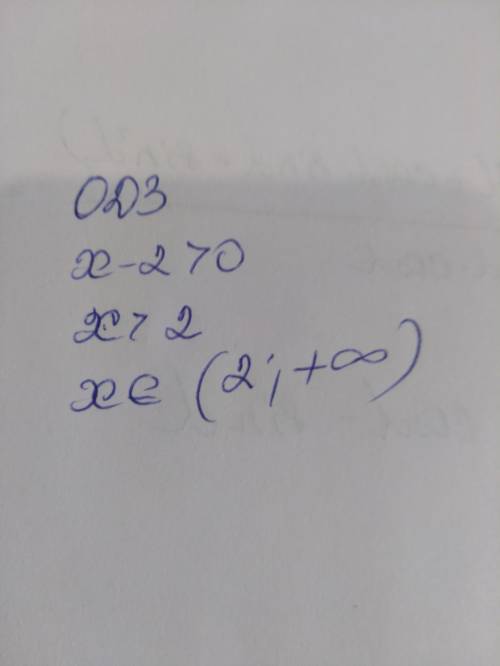 ОДЗ
x-2>0
x>2
x∈(2;+∞)